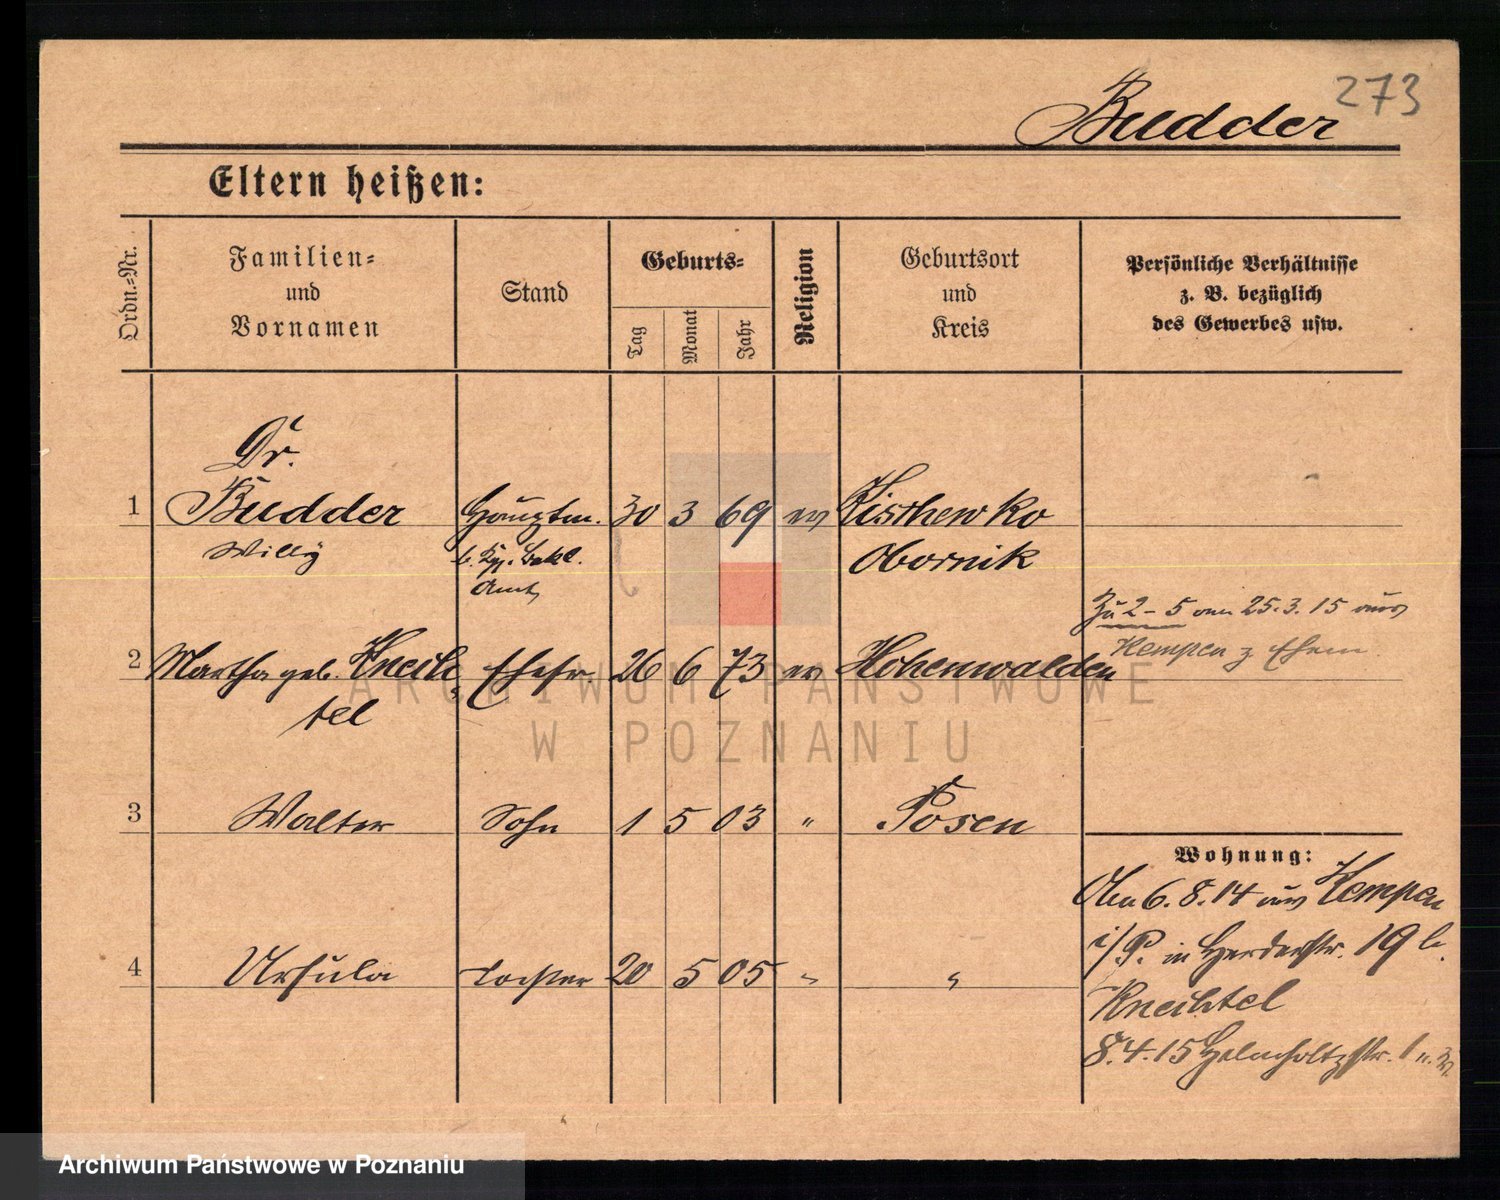 273
Budder
Eltern heißen:
Ordn.-Nr.
Familien-
und
Vornamen
Stand
Geburts-
Tag
Monat
Jahr
Religion
Geburtsort
und
Kreis
Persönliche Verhältnisse
z. B. bezüglich
des Gewerbes usw.
Dr.
1 Budder Hauptm. 30 3 69 ev Kischewko
Willy
Amt
Obornik
Zu 2-5 am 25.3.15 aus
Kempen z Ehem.
2 Martha geb. Knech Ehefr. 26 6 73 ev Hohenwalden
tel
3 Walter Sohn 1 5 03 " Posen
4 Ursula Tochter 20 5 05 " "
Wohnung:
6.8.14 aus Kempen
i/P. in Herderstr. 19 b.
Knechtel
8.4.15 Helmholtzstr. 1
ARCHIWUM PAŃSTWOWE
W POZNANIU
Archiwum Państwowe w Poznaniu